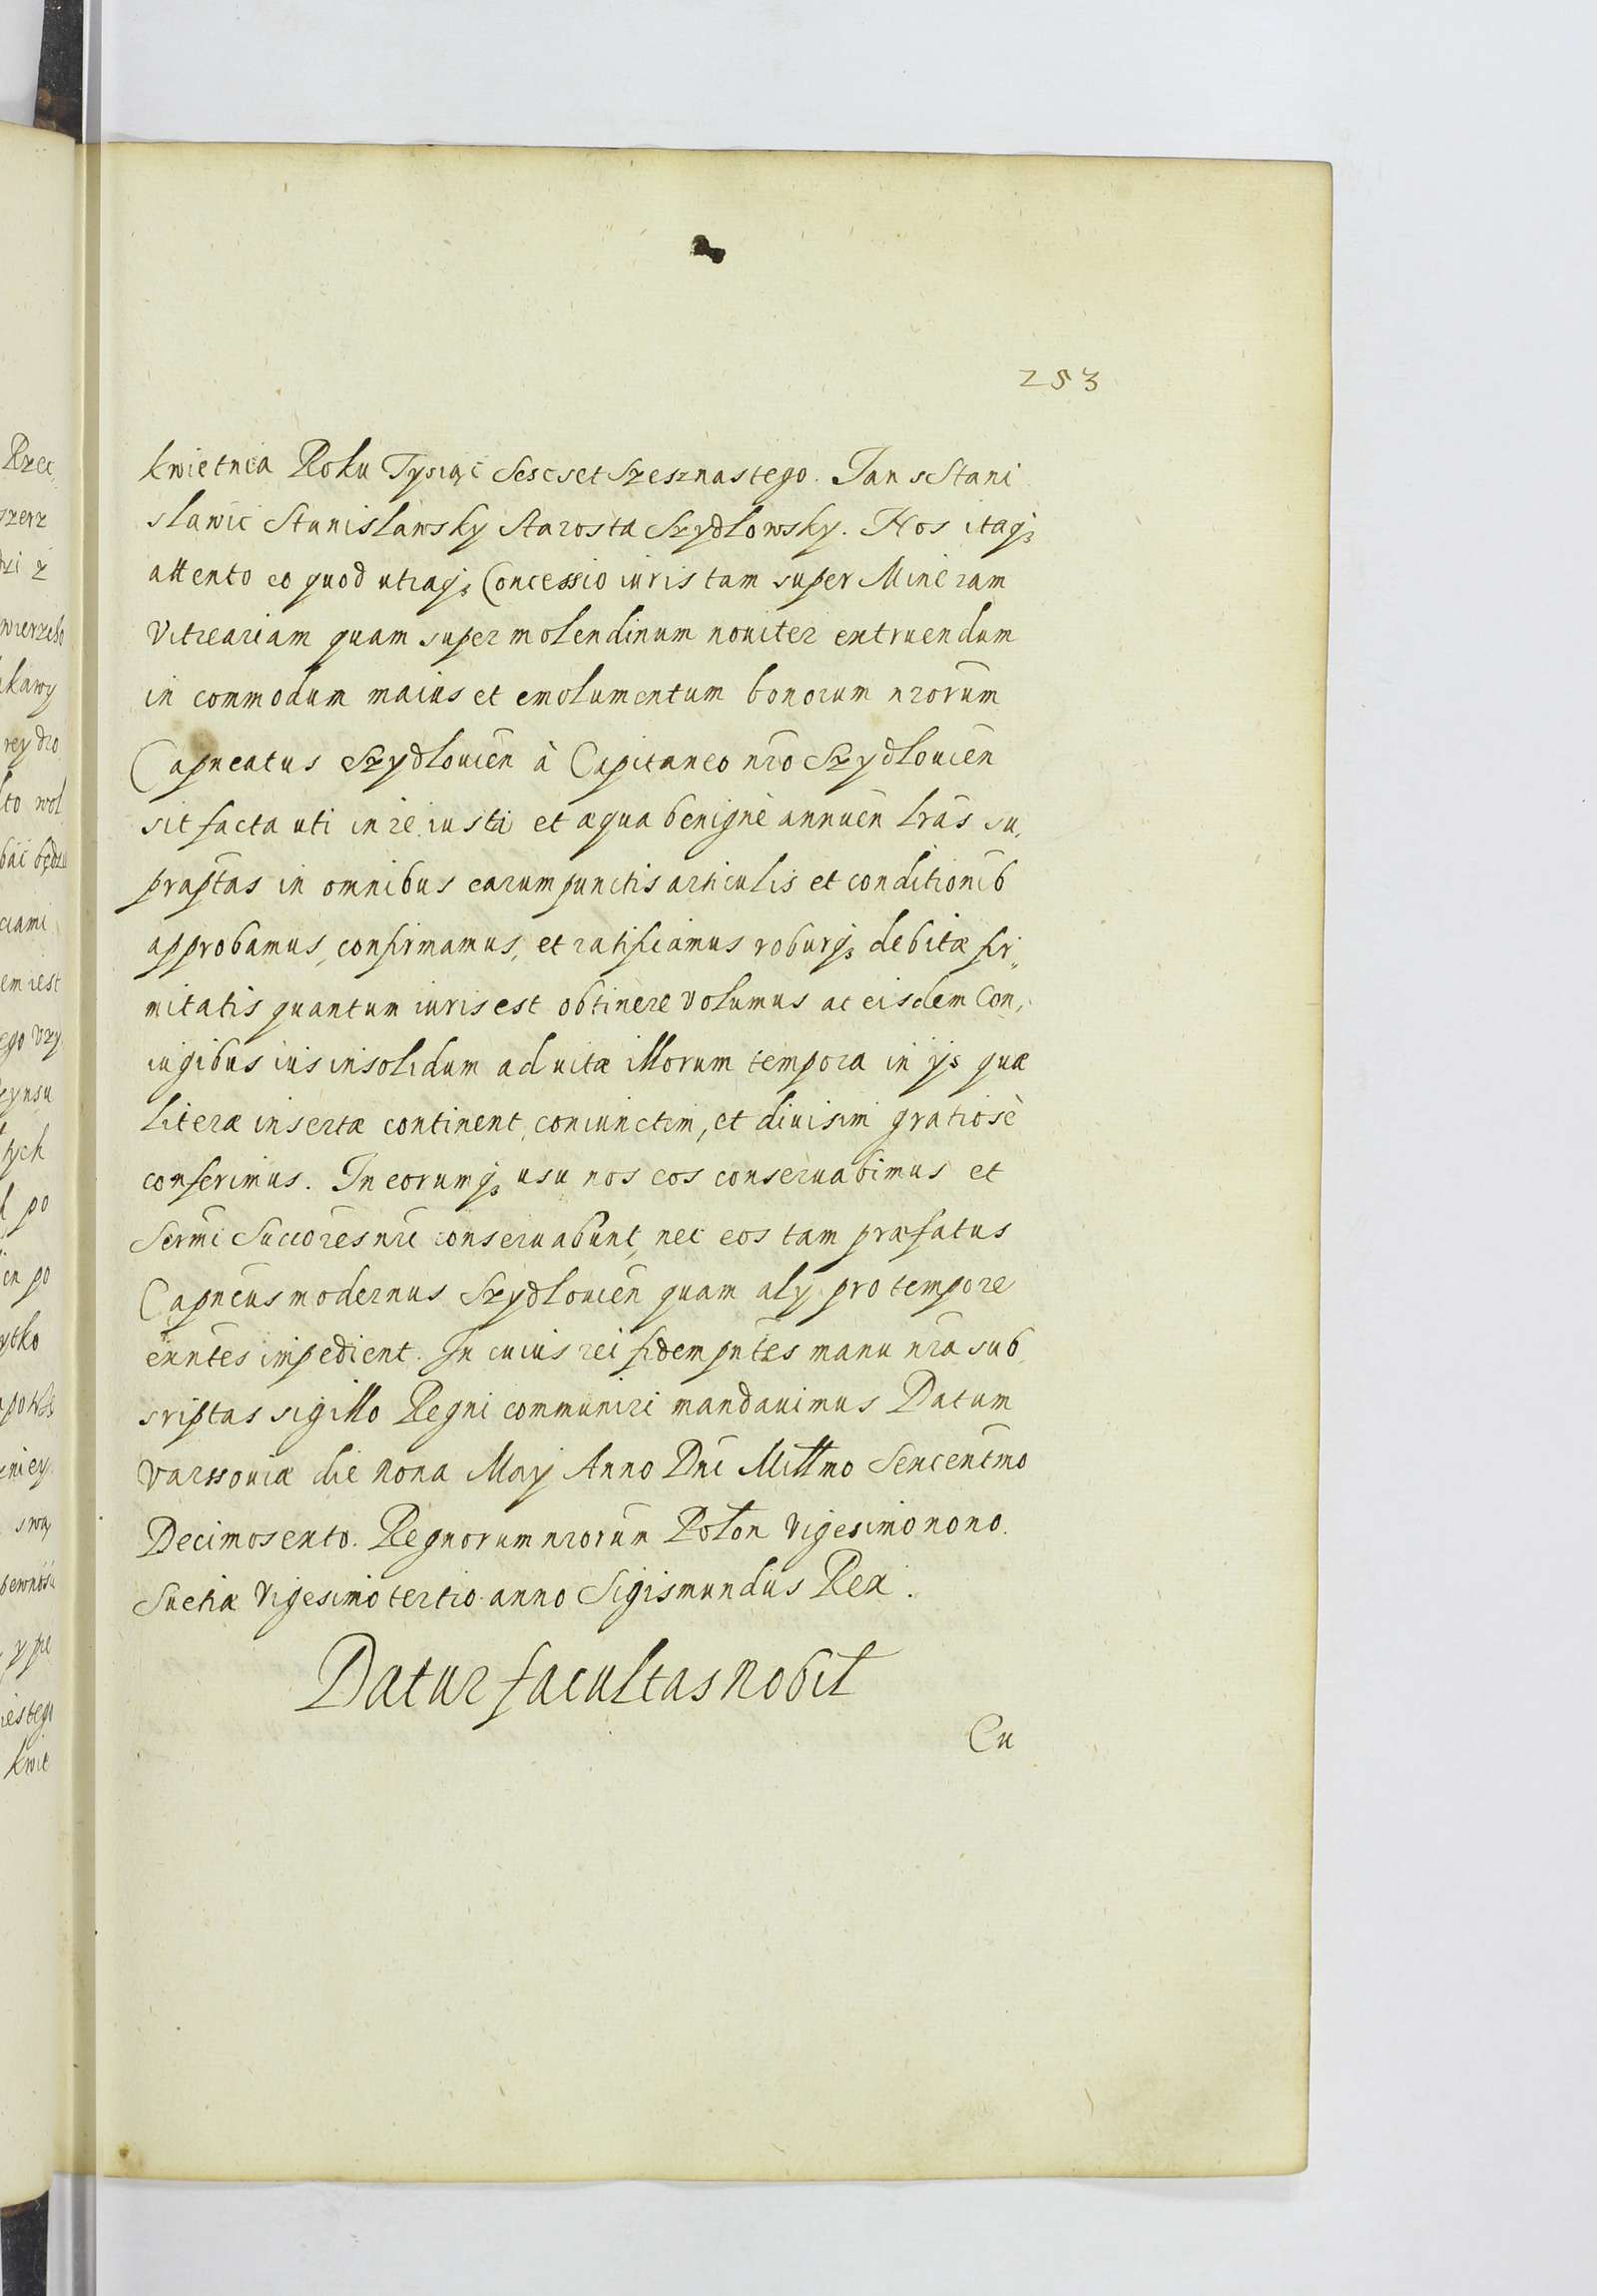 253
kwietnia Roku Tysiąc Sescset Szesznastego. Jan s Stani
slawic Stanislawsky Starosta Szydlowsky. Nos itaq;
attento eo quod utraq; Concessio iuris tam super Mineram
Vitreariam quam super molendinum noviter extruendum
in commodum maius et emolumentum bonorum nrorum
Capneatus Szydlovien à Capitaneo nro Szydlovien
sit facta uti in re iusta et æqua benignè annuen lras su,
praptas in omnibus earum punctis articulis et conditionib
approbamus, confirmamus, et ratificamus roburq; debitæ fir„
mitatis quantum iuris est obtinere volumus ac eisdem Con,
iugibus ius insolidum ad vitæ illorum tempora in ijs quæ
literæ insertæ continent, coniunctim, et divisim gratiosè
conferimus. In eorumq; usu nos eos conservabimus et
Sermi Succores nri conservabunt, nec eos tam præfatus
Capneus modernus Szydlovien quam alij pro tempore
exnntes impedient. In cuius rei fidem pntes manu nra sub
sriptas sigillo Regni communiri mandavimus Datum
Varssoviæ die nona Maij Anno Dni Millmo Sexcentmo
Decimosexto. Regnorum nrorum Polon Vigesimo nono.
Suetiæ Vigesimo tertio anno Sigismundus Rex.
Datur facultas Nobil
Cu
Rzec
szerz
zi z
wierzcho
kawy
rey dro
to wol
bac będzie
ciami
em iest
ego Vrzy
eynsu
tych
po
en po
ytko
zniey
swą
pewnośc
y prze
iestego
kwit